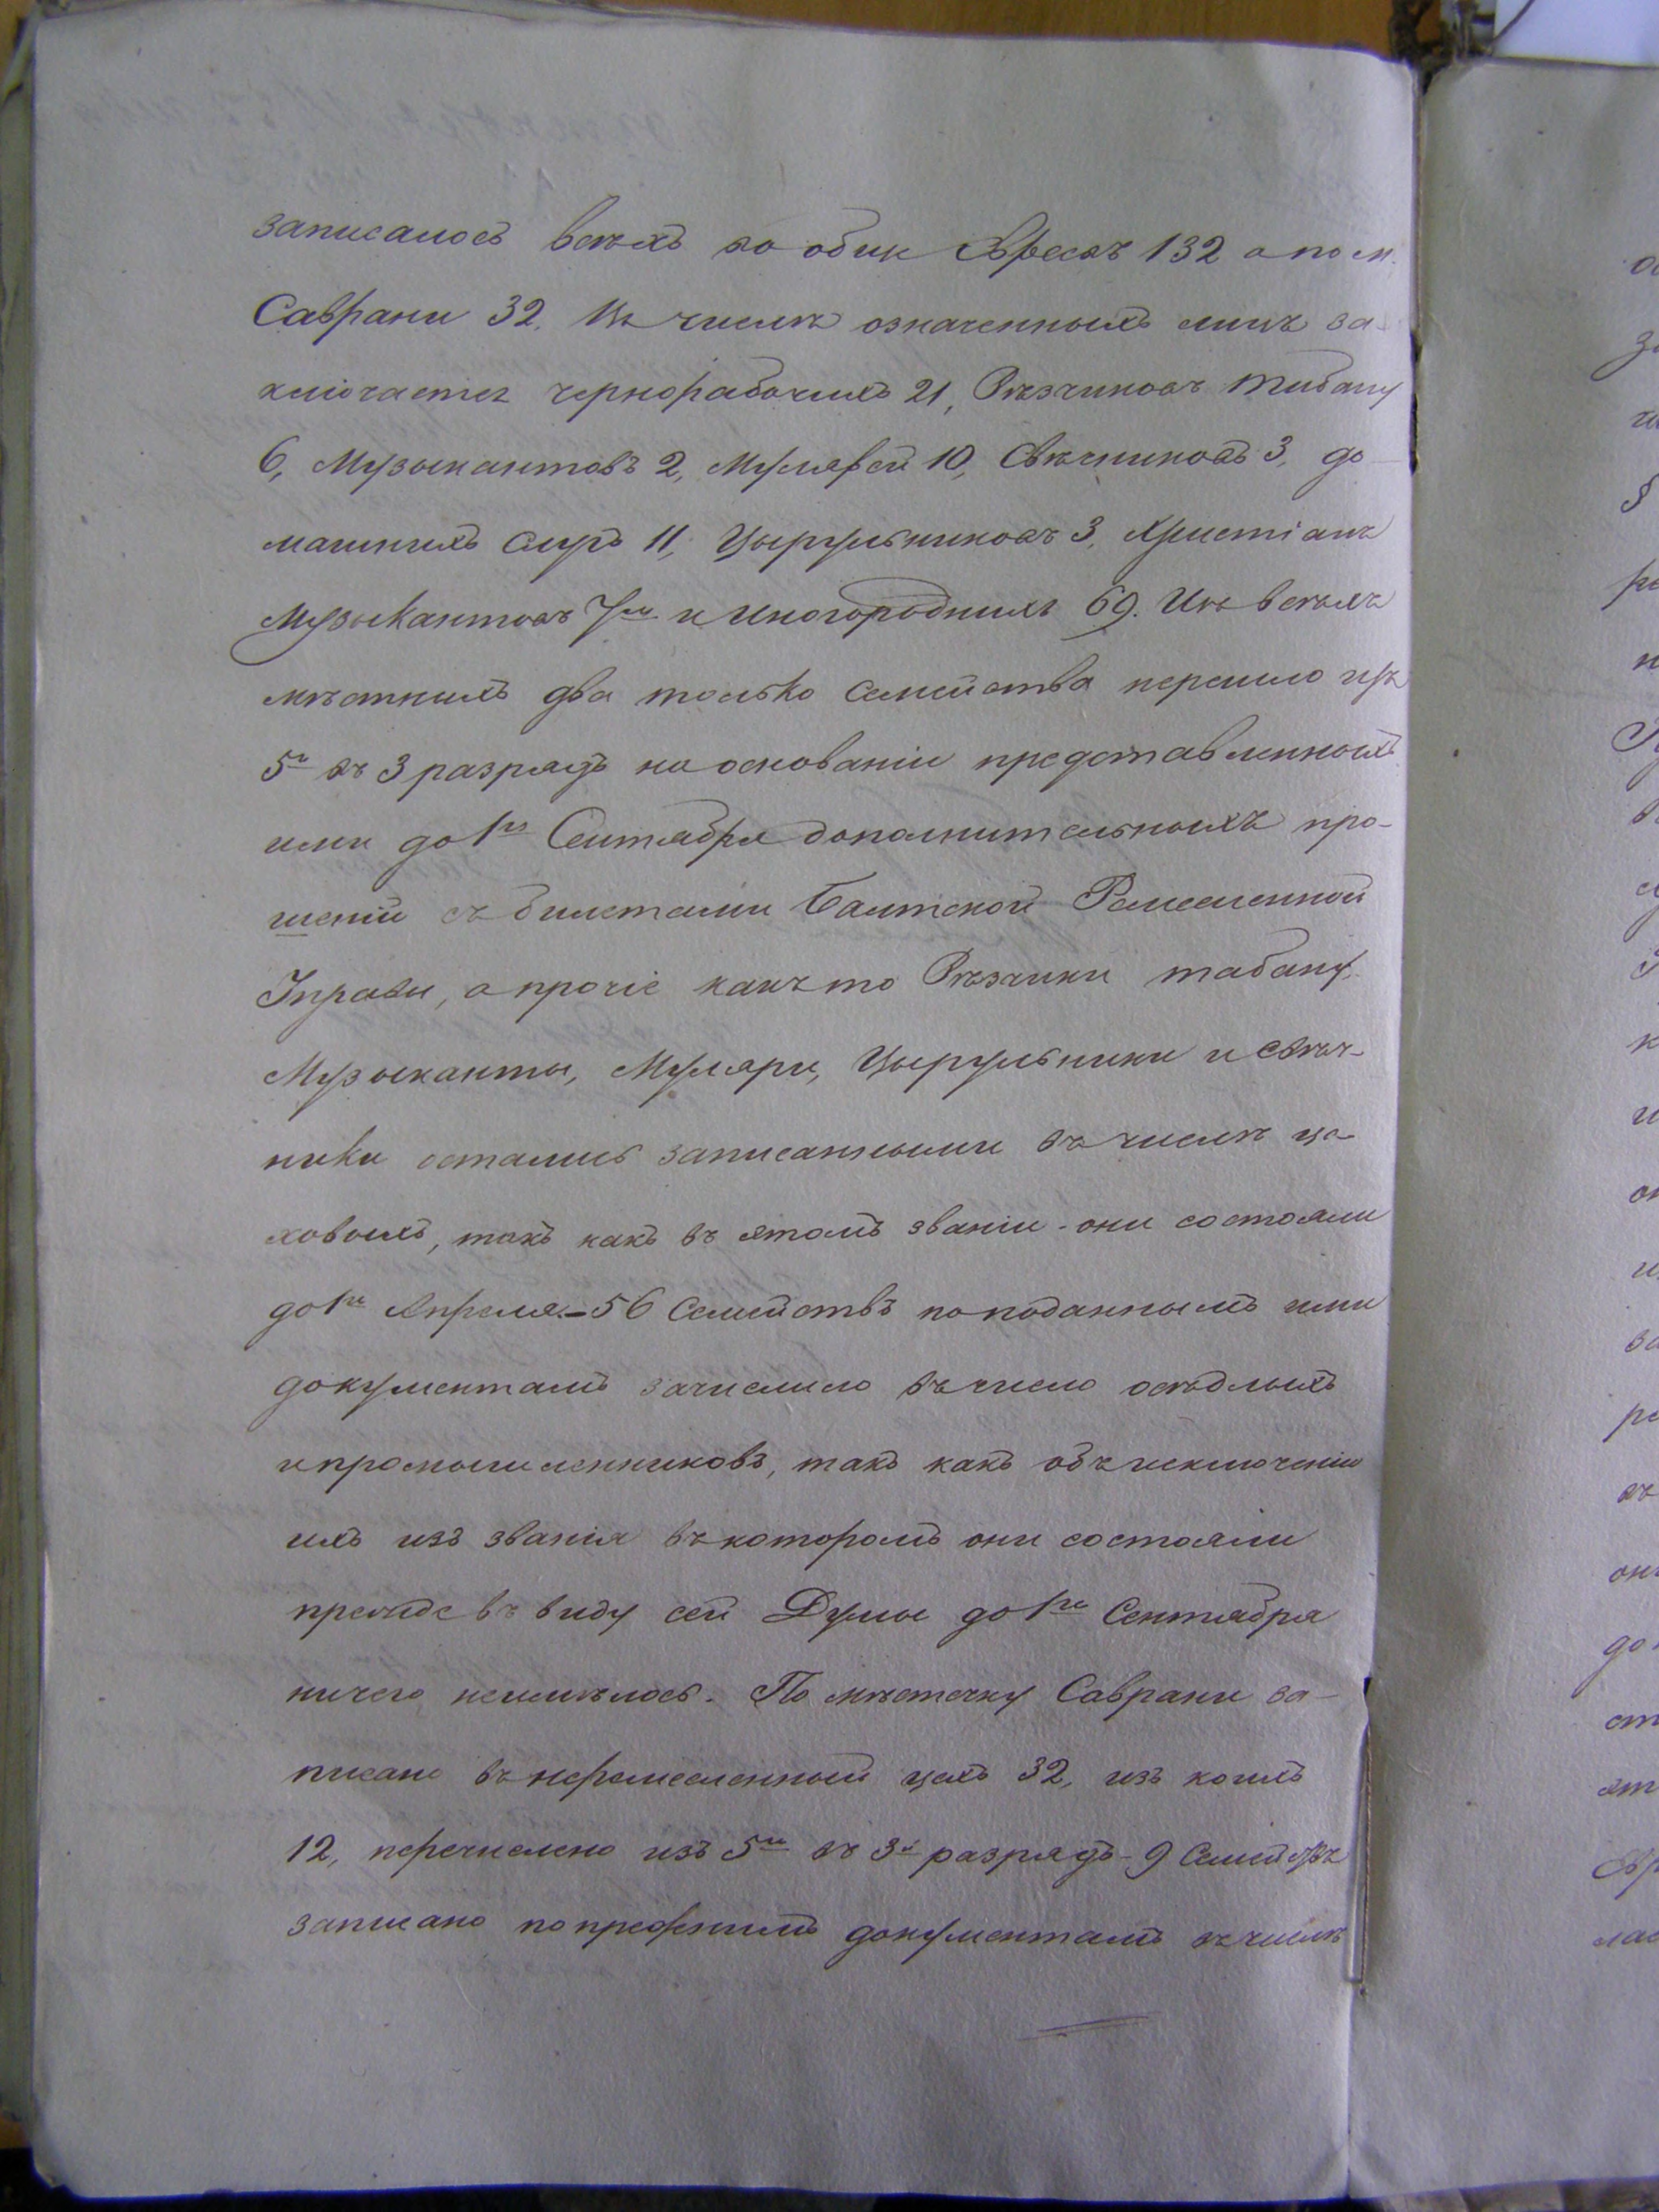 записалось всѣхъ во обще Евреевъ 132 а по м.
Саврани 32. Въ числѣ означенныхъ лицъ за-
ключается чернорабочихъ 21, Рѣзчиковъ табаку
6, Музыкантовъ 2, Мулярей 10, Свѣчниковъ 3, до-
машнихъ слугъ 11, Цырульниковъ 3, Христіанъ
Музыкантовъ 7м и Иногороднихъ 69. Изъ всѣхъ
мѣстныхъ два только семейства перешло изъ
5го въ 3 разрядъ на основаніи представленныхъ
ими до 1го Сентября дополнительныхъ про-
шеній съ билетами Балтской Ремесленной
Управы, а прочіе какъ то Рѣзчики табаку
Музыканты, Муляри, Цырульники и свѣч-
ники остались записанными въ числѣ це-
ховыхъ, такъ какъ въ этомъ званіи они состояли
до 1го Апреля. – 56 Семействъ по поданнымъ ими
документамъ зачислило въ число осѣдлыхъ
и промышленниковъ, такъ какъ объ исключеніи
ихъ изъ званія въ которомъ они состояли
прежде въ виду сей Думы до 1го Сентября
ничего неимѣлось. По мѣстечку Саврани за-
писано въ неремесленный цехъ 32, изъ коихъ
12, перечислено изъ 5го въ 3й разрядъ – 9 Семействъ
записано по прежнимъ документамъ въ числѣ